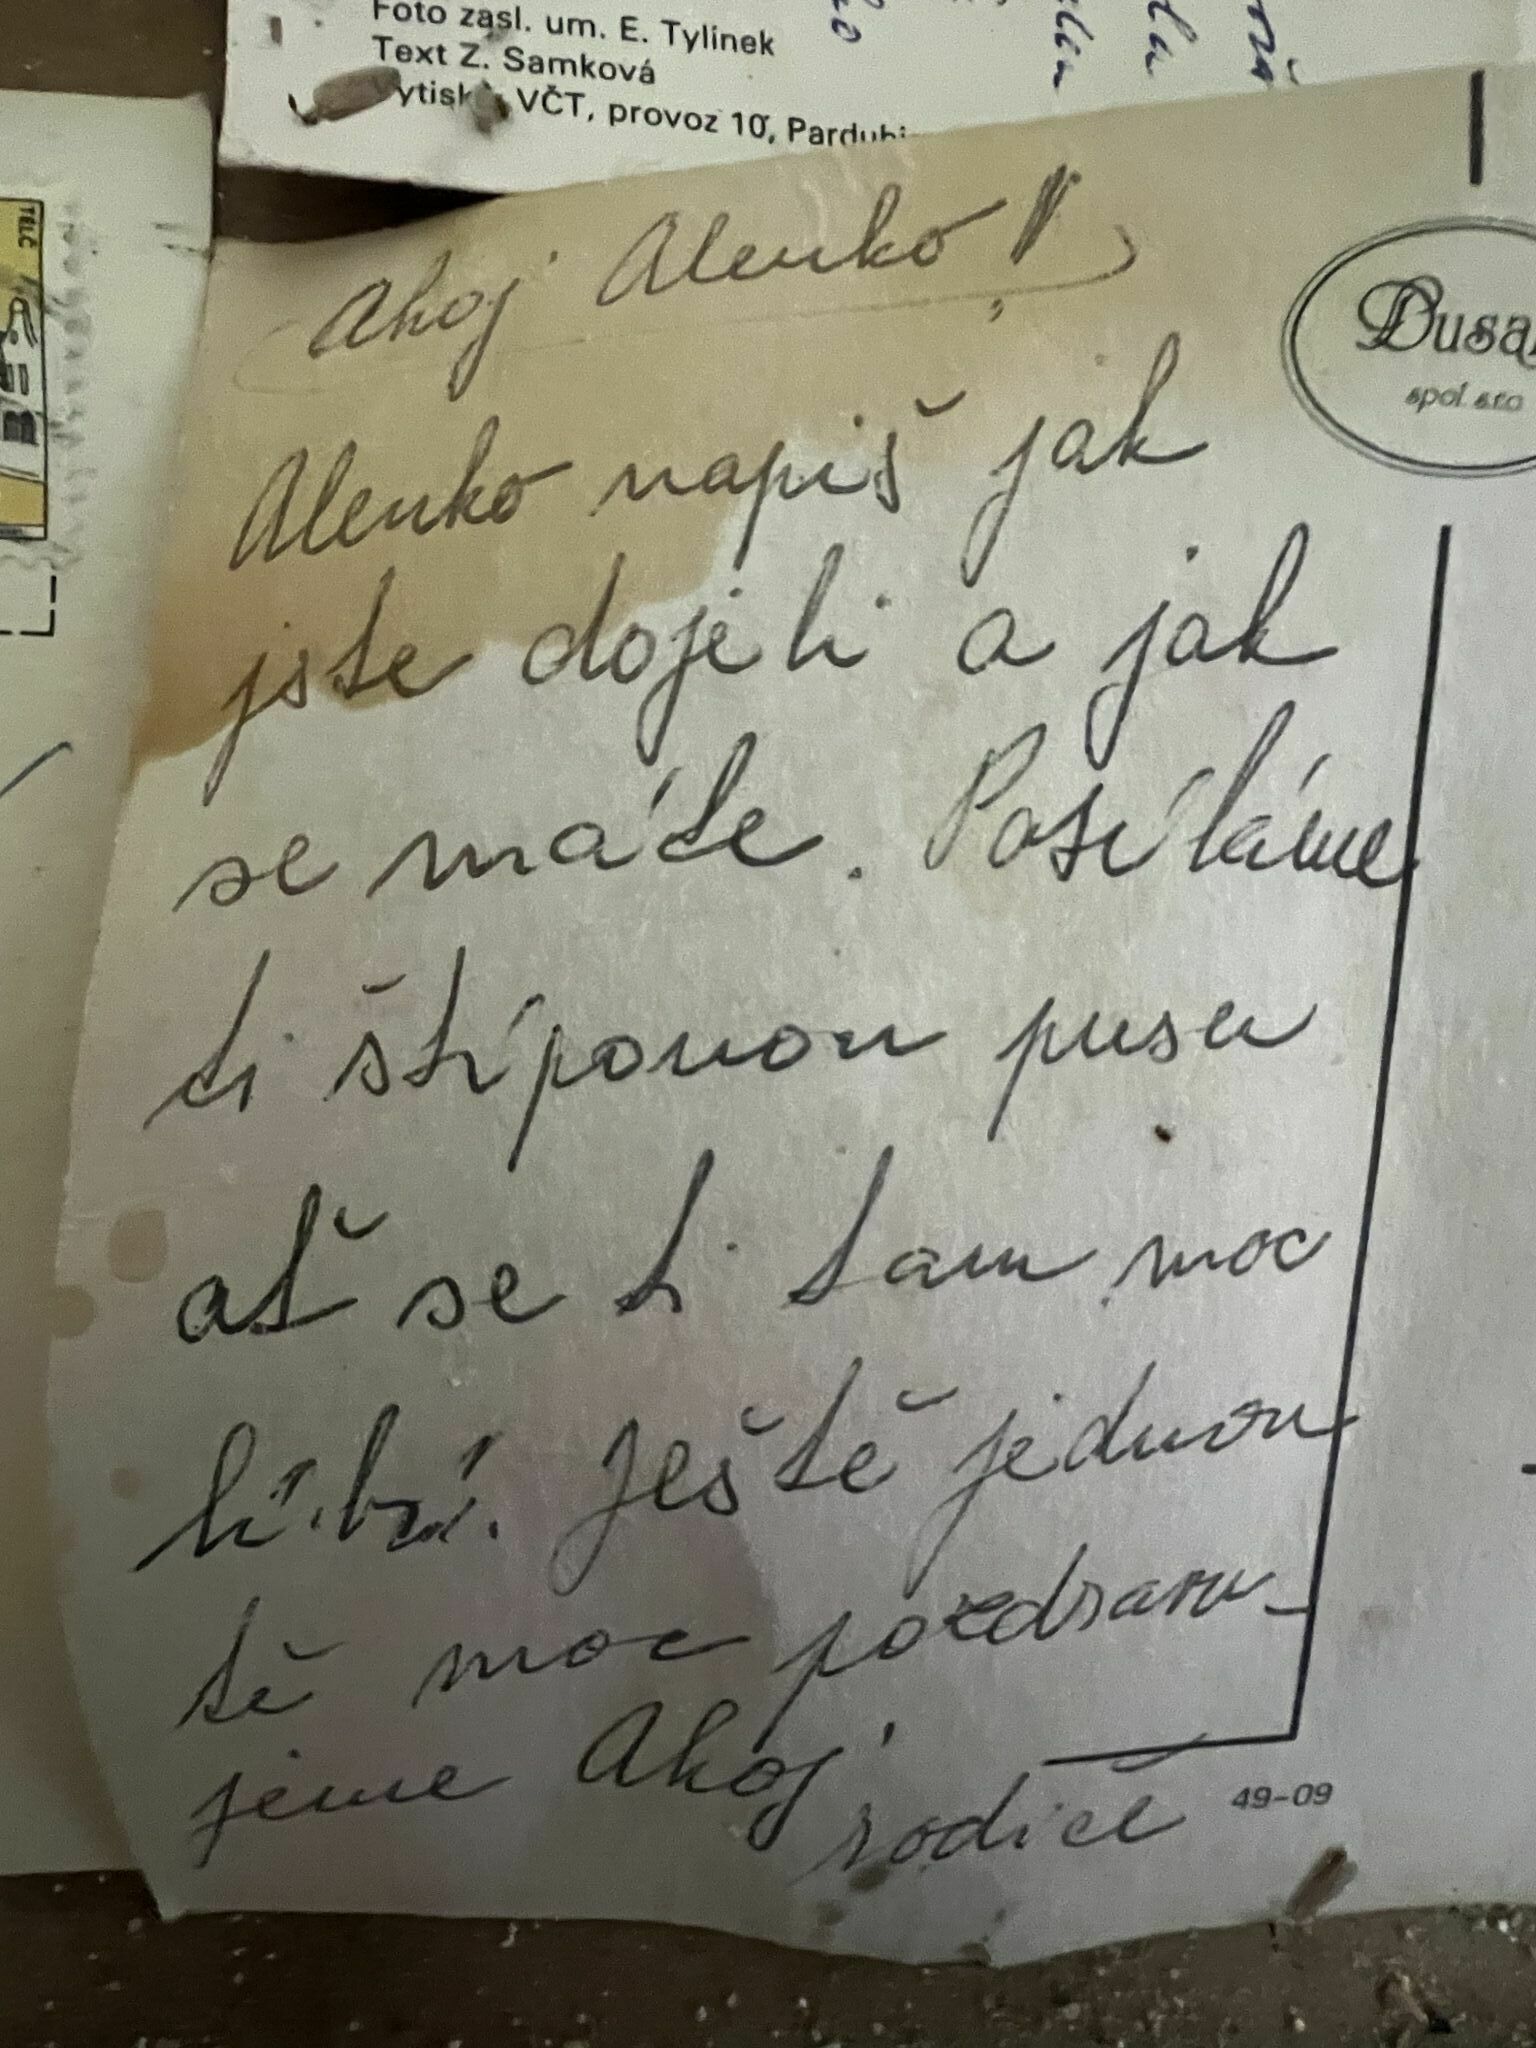 Foto zasl. um. E. Tylínek
Text Z. Samková
VČT, provoz 10, Pardubi
TELČ
Dusa
spol. s r.o
Ahoj Alenko!
Alenko napiš jak
jste dojeli a jak
se máte. Posíláme
ti štípanou pusu
ať se ti tam moc
líbí. Ještě jednou
tě moc pozdravu-
jeme Ahoj
rodiče
49-09